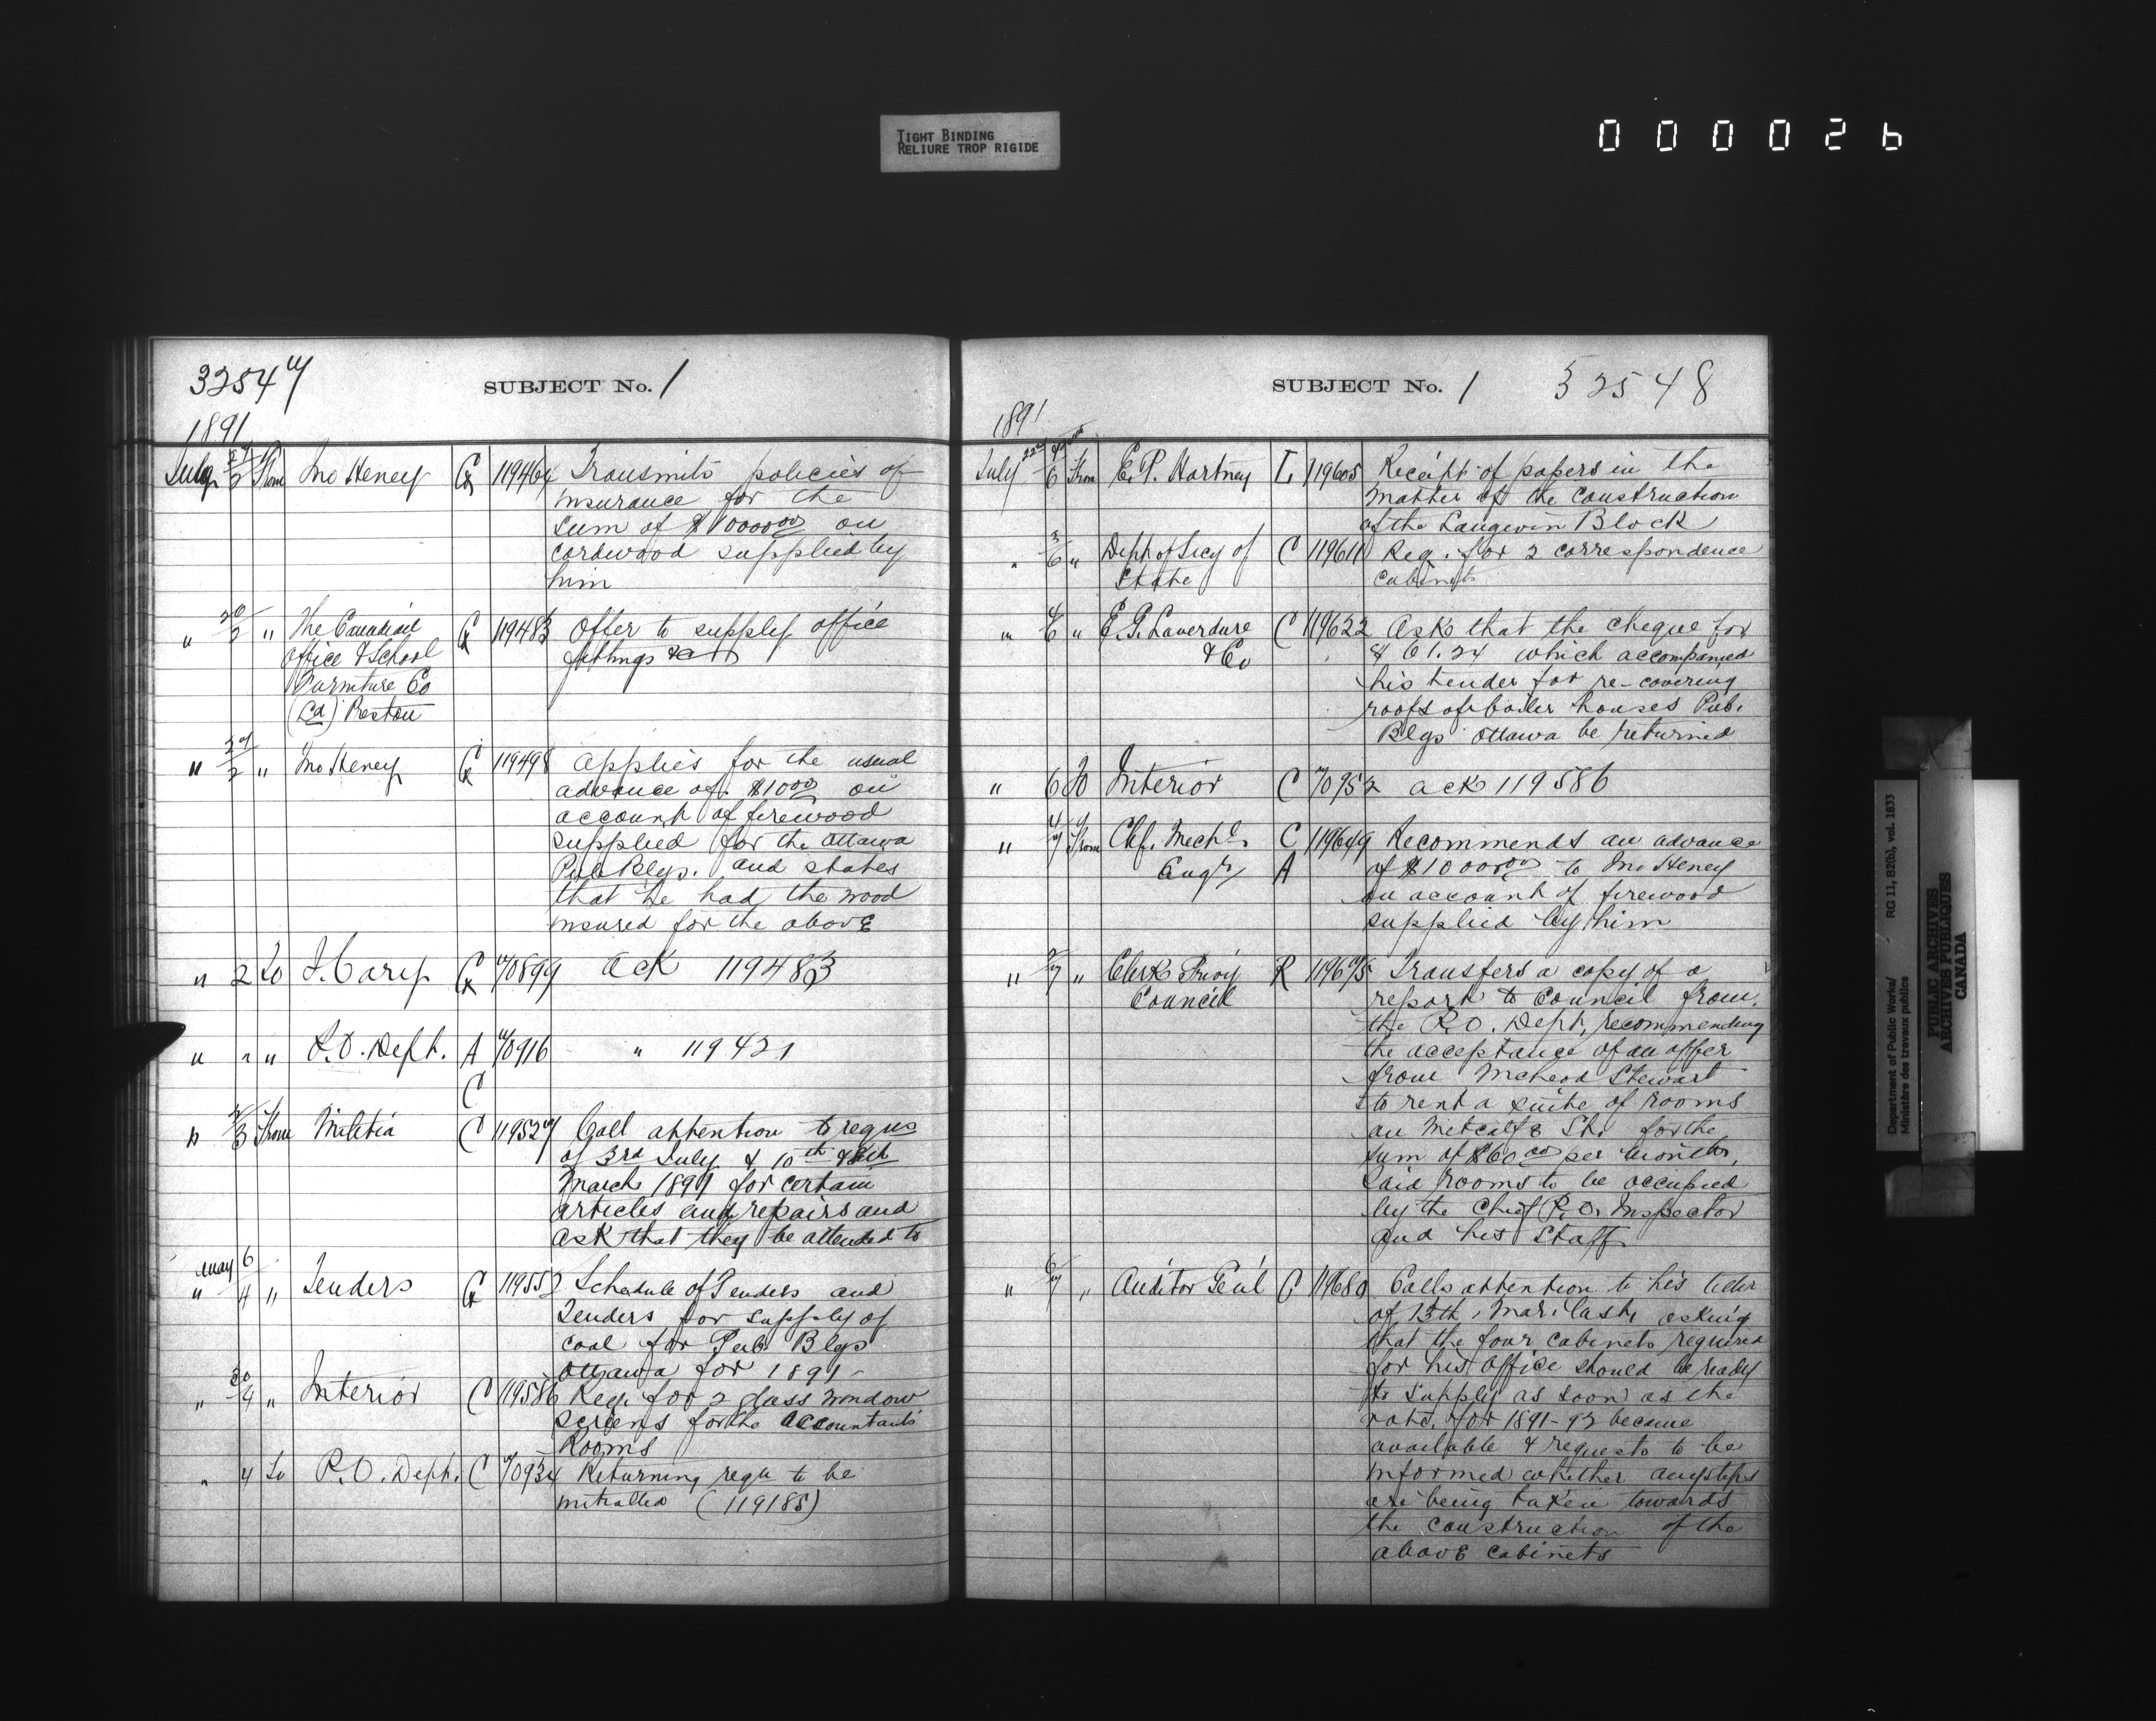 TIGHT BINDING
RELIURE TROP RIGIDE
0 0 0 0 2 6
32547
SUBJECT No. 1
1891
July 2 From Jno Heney 119464 Transmits policies of
insurance for the
sum of $10000 00 on
cordwood supplied by
him
" 30/2 " The Canadian 119483 Offer to supply office
Office & School fittings &c
Furniture Co
(Ld) Preston
" 2 " Jno Heney 119498 Applies for the usual
advance of $1000 on
account of firewood
supplied for the Ottawa
Pub Blgs. and states
that he had the wood
insured for the above
" 2 To J. Carey 70899 Ack 119483
" " " P.O. Dept. A 70916 " 119421
C
" 2/3 From Militia C 119527 Call attention to requs
of 3rd July & 10th &
March 1891 for certain
articles and repairs and
ask that they be attended to
May 6
" 4 " Tenders 119552 Schedule of Tenders and
Tenders for supply of
coal for Pub. Blgs
Ottawa for 1891-
" 30/4 " Interior C 119586 Req. for 2 glass window
screens for the Accountants'
Rooms
" 4 To P.O. Dept. C 70934 Returning requ to be
initialled (119185)
SUBJECT No. 1 32548
1891
July 6 From E. P. Hartney L 119605 Receipt of papers in the
matter of the construction
of the Langevin Block
" 3/6 " Dept of Secy of C 119611 Req. for 2 correspondence
State cabinets
" 4/6 " E. G. Laverdure C 119622 Ask that the cheque for
& Co $61.24 which accompanied
his tender for re-covering
roofs of boiler houses Pub.
Blgs Ottawa be returned
" 6 To Interior C 70952 Ack 119586
" 4/7 From Chf. Mechl. C 119649 Recommends an advance
Engr A of $10000 00 to Jno Heney
on account of firewood
supplied by him
" 2/7 " Clerk Privy R 119675 Transfers a copy of a
Council report to Council from
the P.O. Dept, recommending
the acceptance of an offer
from McLeod Stewart
to rent a suite of rooms
on Metcalfe St. for the
sum of $60 00 per month,
said rooms to be occupied
by the Chief P.O. Inspector
and his Staff
" 6/7 " Auditor Genl C 119680 Calls attention to his letter
of 13th Mar. last, asking
that the four cabinets required
for his office should be ready
to supply as soon as the
vote for 1891-92 became
available & requests to be
informed whether any steps
are being taken towards
the construction of the
above cabinets
Department of Public Works/ RG 11, B2(b), vol. 1833
Ministère des travaux publics
PUBLIC ARCHIVES
ARCHIVES PUBLIQUES
CANADA